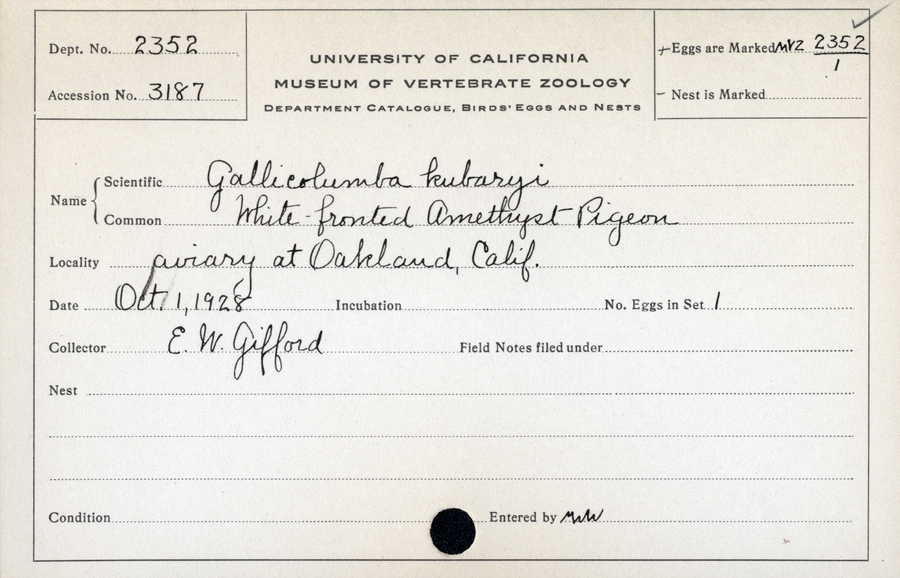 Dept. No. 2352
Accession No. 3187
UNIVERSITY OF CALIFORNIA
MUSEUM OF VERTEBRATE ZOOLOGY
DEPARTMENT CATALOGUE, BIRDS' EGGS AND NESTS
Eggs are Marked MVZ 2352
1
Nest is Marked
Name
Scientific Gallicolumba kubaryi
Common White-fronted Amethyst Pigeon
Locality aviary at Oakland, Calif.
Date Oct. 1, 1928 Incubation No. Eggs in Set 1
Collector E. W. Gifford Field Notes filed under
Nest
Condition Entered by